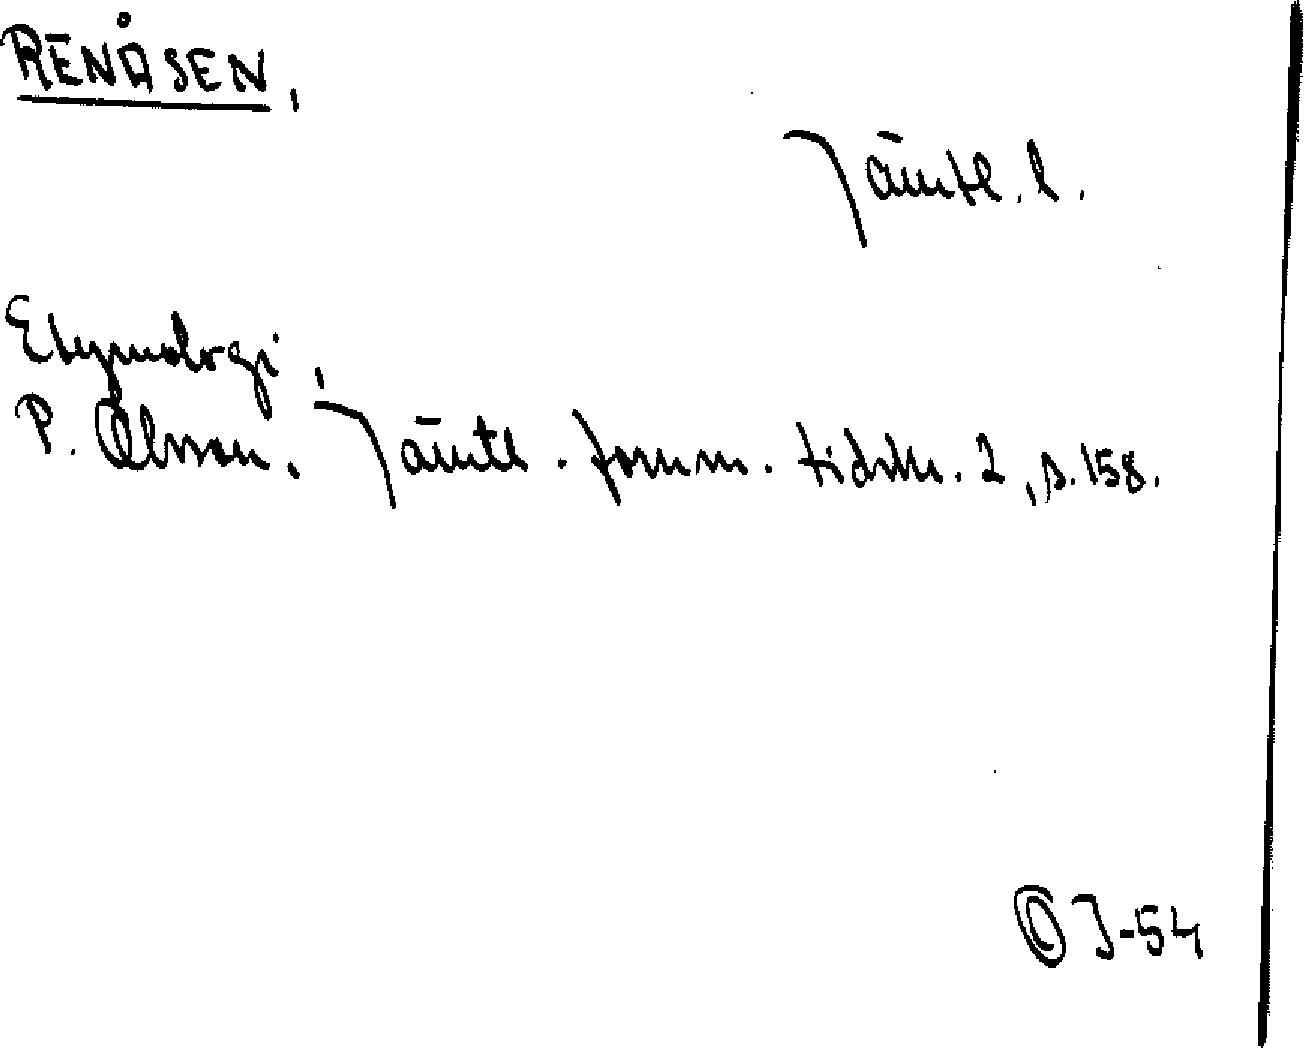 RENÅSEN,
Jämtl. l.
Etymologi,
P. Olsson. Jämtl. fornm. tidskr. 2, s. 158.
J-54